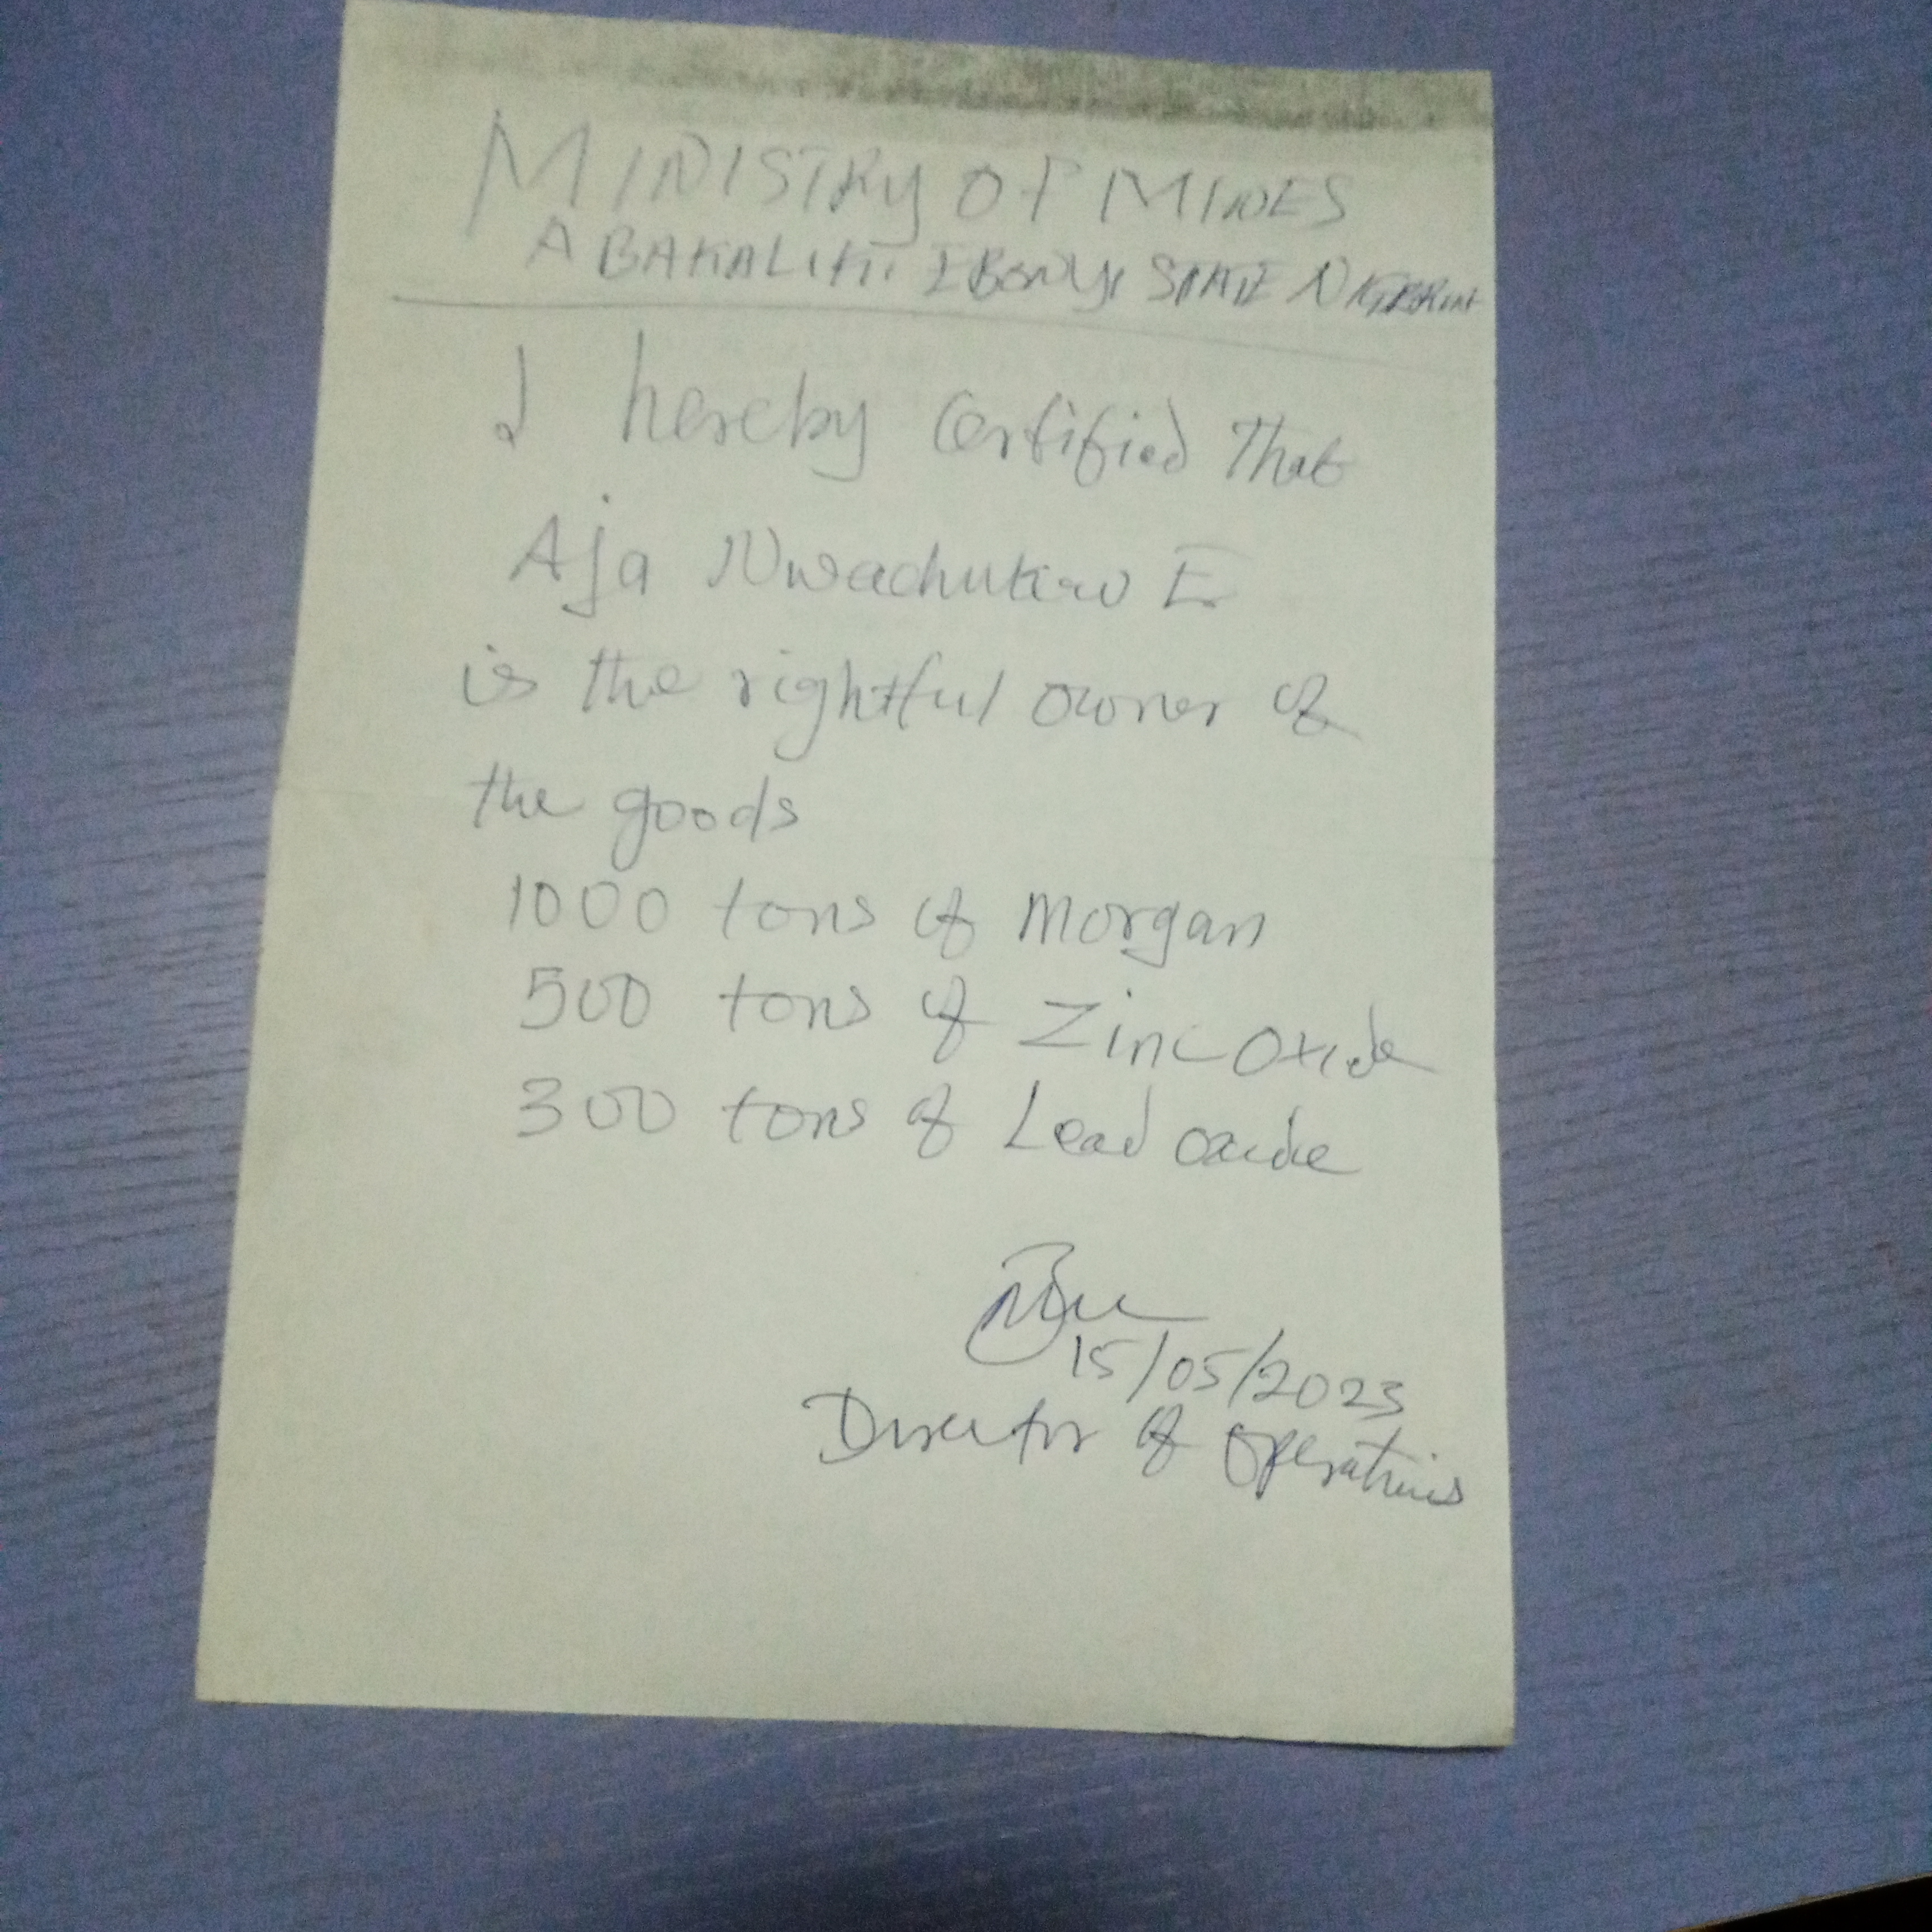 MINISTRY OF MINES
ABAKALIKI EBONYI STATE NIGERIA
I hereby Certified That
Aja Nwachukwu E
is the rightful owner of
the goods
1000 tons of Morgan
500 tons of Zinc Oxide
300 tons of Lead oxide
15/05/2023
Director of Operations